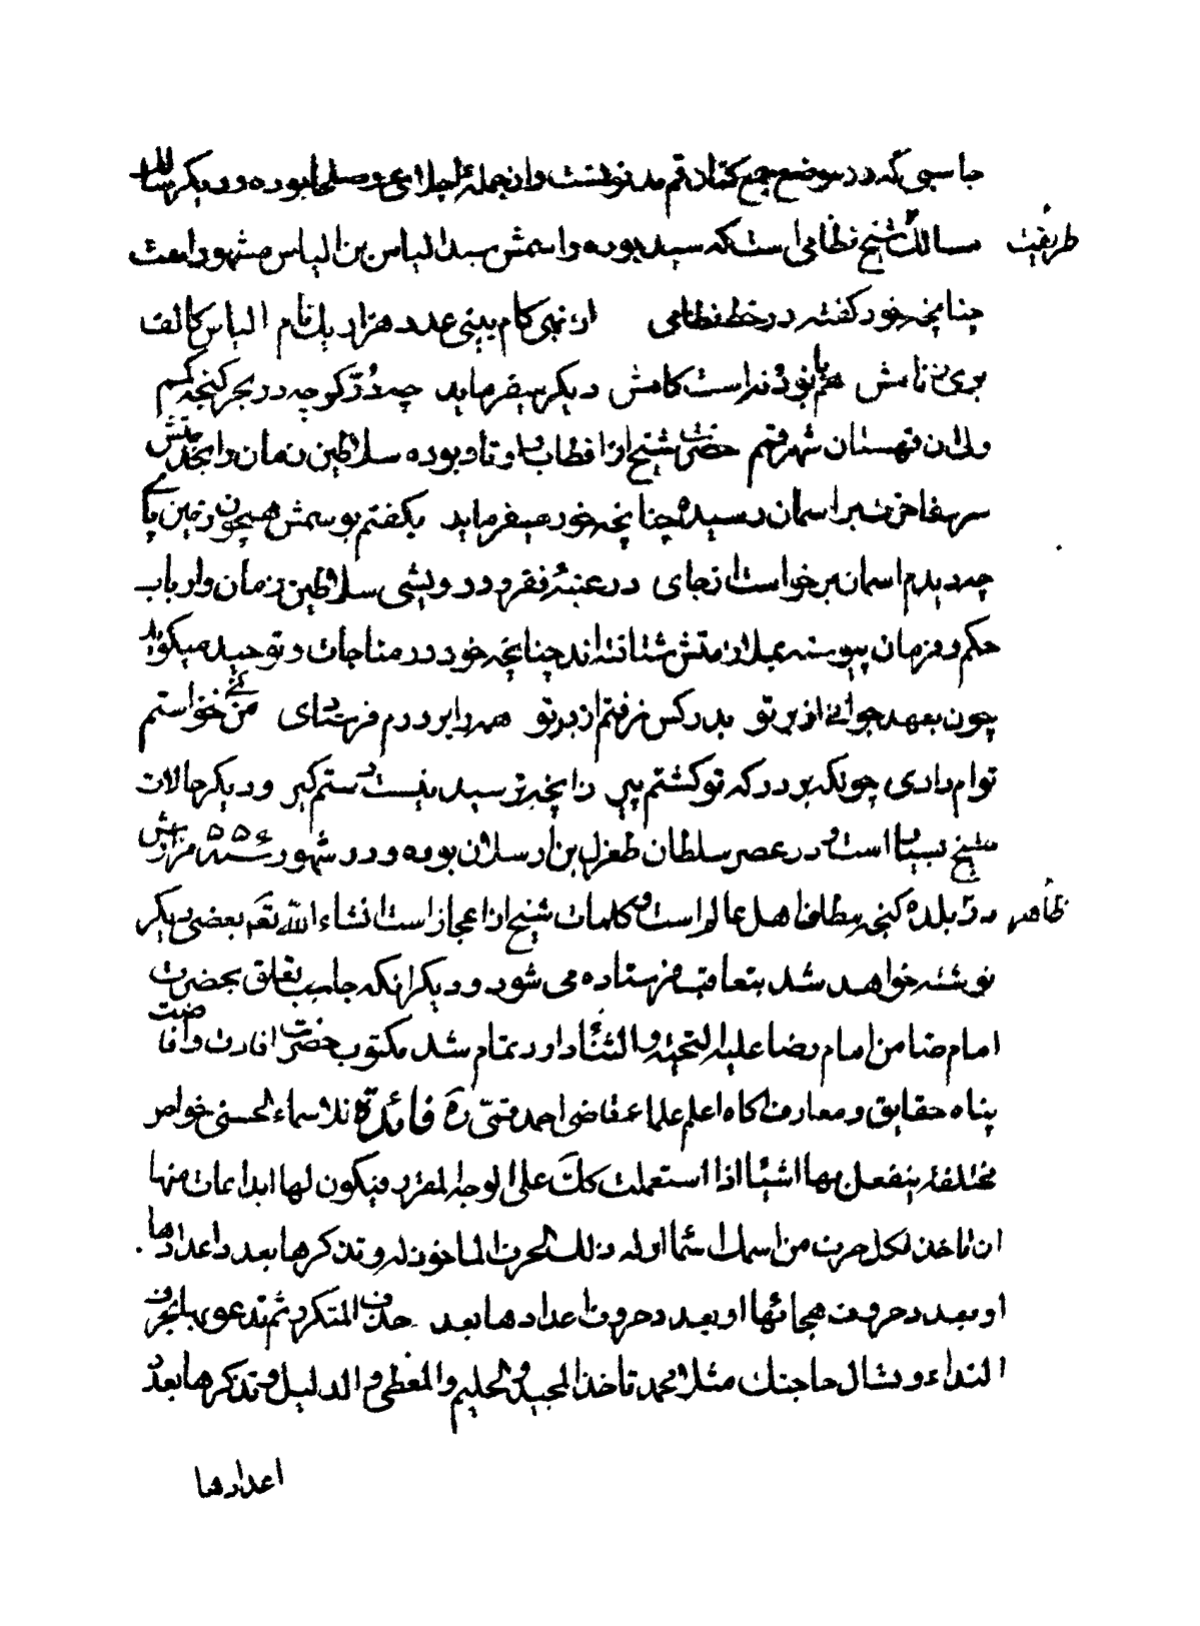 جاسبی که در موضع جمع کتاب رقم مد نوشت و از جمله اجلای و صلحا بوده و دیگر سالک
طریقت مسالک شیخ نظامی است که سید بوده و اسمش سید الیاس بن الیاس مشهور است
چنانچه خود گفته در خط نظامی از نهی کام بینی عدد هزار یک نام الیاس کالف
بری ز نامش هم با نود نه است کامش دیگر میفرماید چه دُرّ گر چه در بحر گنجه گمم
ولی از قهستان شهر قمم حضرت شیخ از اقطاب و اوتاد بوده سلاطین زمان را بخدمتش
سر مفاخرت بر اسمان رسیده چنانچه خود میفرماید بگفتم بوسمش همچون زمین پای
چه دیدم اسمان برخواست از جای در عتبهٔ فقر و درویشی سلاطین زمان و ارباب
حکم و فرمان پیوسته بملازمتش شتافته اند چنانچه خود در مناجات و توحید میگوید
چون بعهد جوانی از بر تو بدر کس نرفتم از در تو همه را بر درم فرستادی من نمی خواستم
توام دادی چونکه بر درگه تو گشتم پیر زانچه ترسیدنیست دستم گیر و دیگر حالات
شیخ بسیار است و در عصر سلطان طغرل بن ارسلان بوده و در شهور سنه ۵۵۶ مزارش
ظاهر در بلده گنجه مطاف اهل عالم است و کلمات شیخ از اعجاز است انشاء الله تعم بعضی دیگر
نوشته خواهد شد بتعاقب فرستاده می شود و دیگر انکه جاسب تعلق بحضرت
امام ضامن امام رضا علیه التحیة و الثناء دارد تمام شد مکتوب حضرت افادت و افاضت
پناه حقایق و معارف اگاه اعلم علماء قاضی احمد قمّی رهَ فائدة للاسماء الحسنی خواص
مختلفة ینفعل بها اشیا اذا استعملت کک علی الوجه المقرر فیکون لها ابداعات منها
ان تاخذ لکل حرف من اسمک اسما اوله ذلک الحرف الماخوذ له و تذکرها بعدد اعدادها
او بعدد حروف هجائها او بعدد حروف اعدادها بعد حذف المتکرر ثم تدعو بها بحرف
النداء و تسال حاجتک مثلا محمد تاخذ المجید و الحلیم و المعطی و الدلیل و تذکرها بعدد
اعدادها